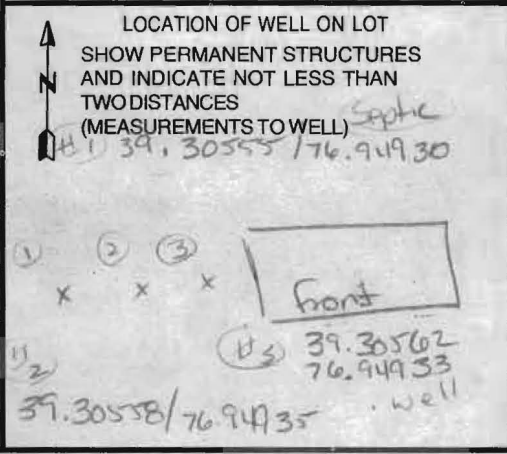 LOCATION OF WELL ON LOT
SHOW PERMANENT STRUCTURES
N AND INDICATE NOT LESS THAN
TWO DISTANCES
(MEASUREMENTS TO WELL) Septic
#1 39.30555 / 76.94930
1 2 3
x x x
front
#3 39.30562
76.94933
#2
39.30558/76.94935 . well